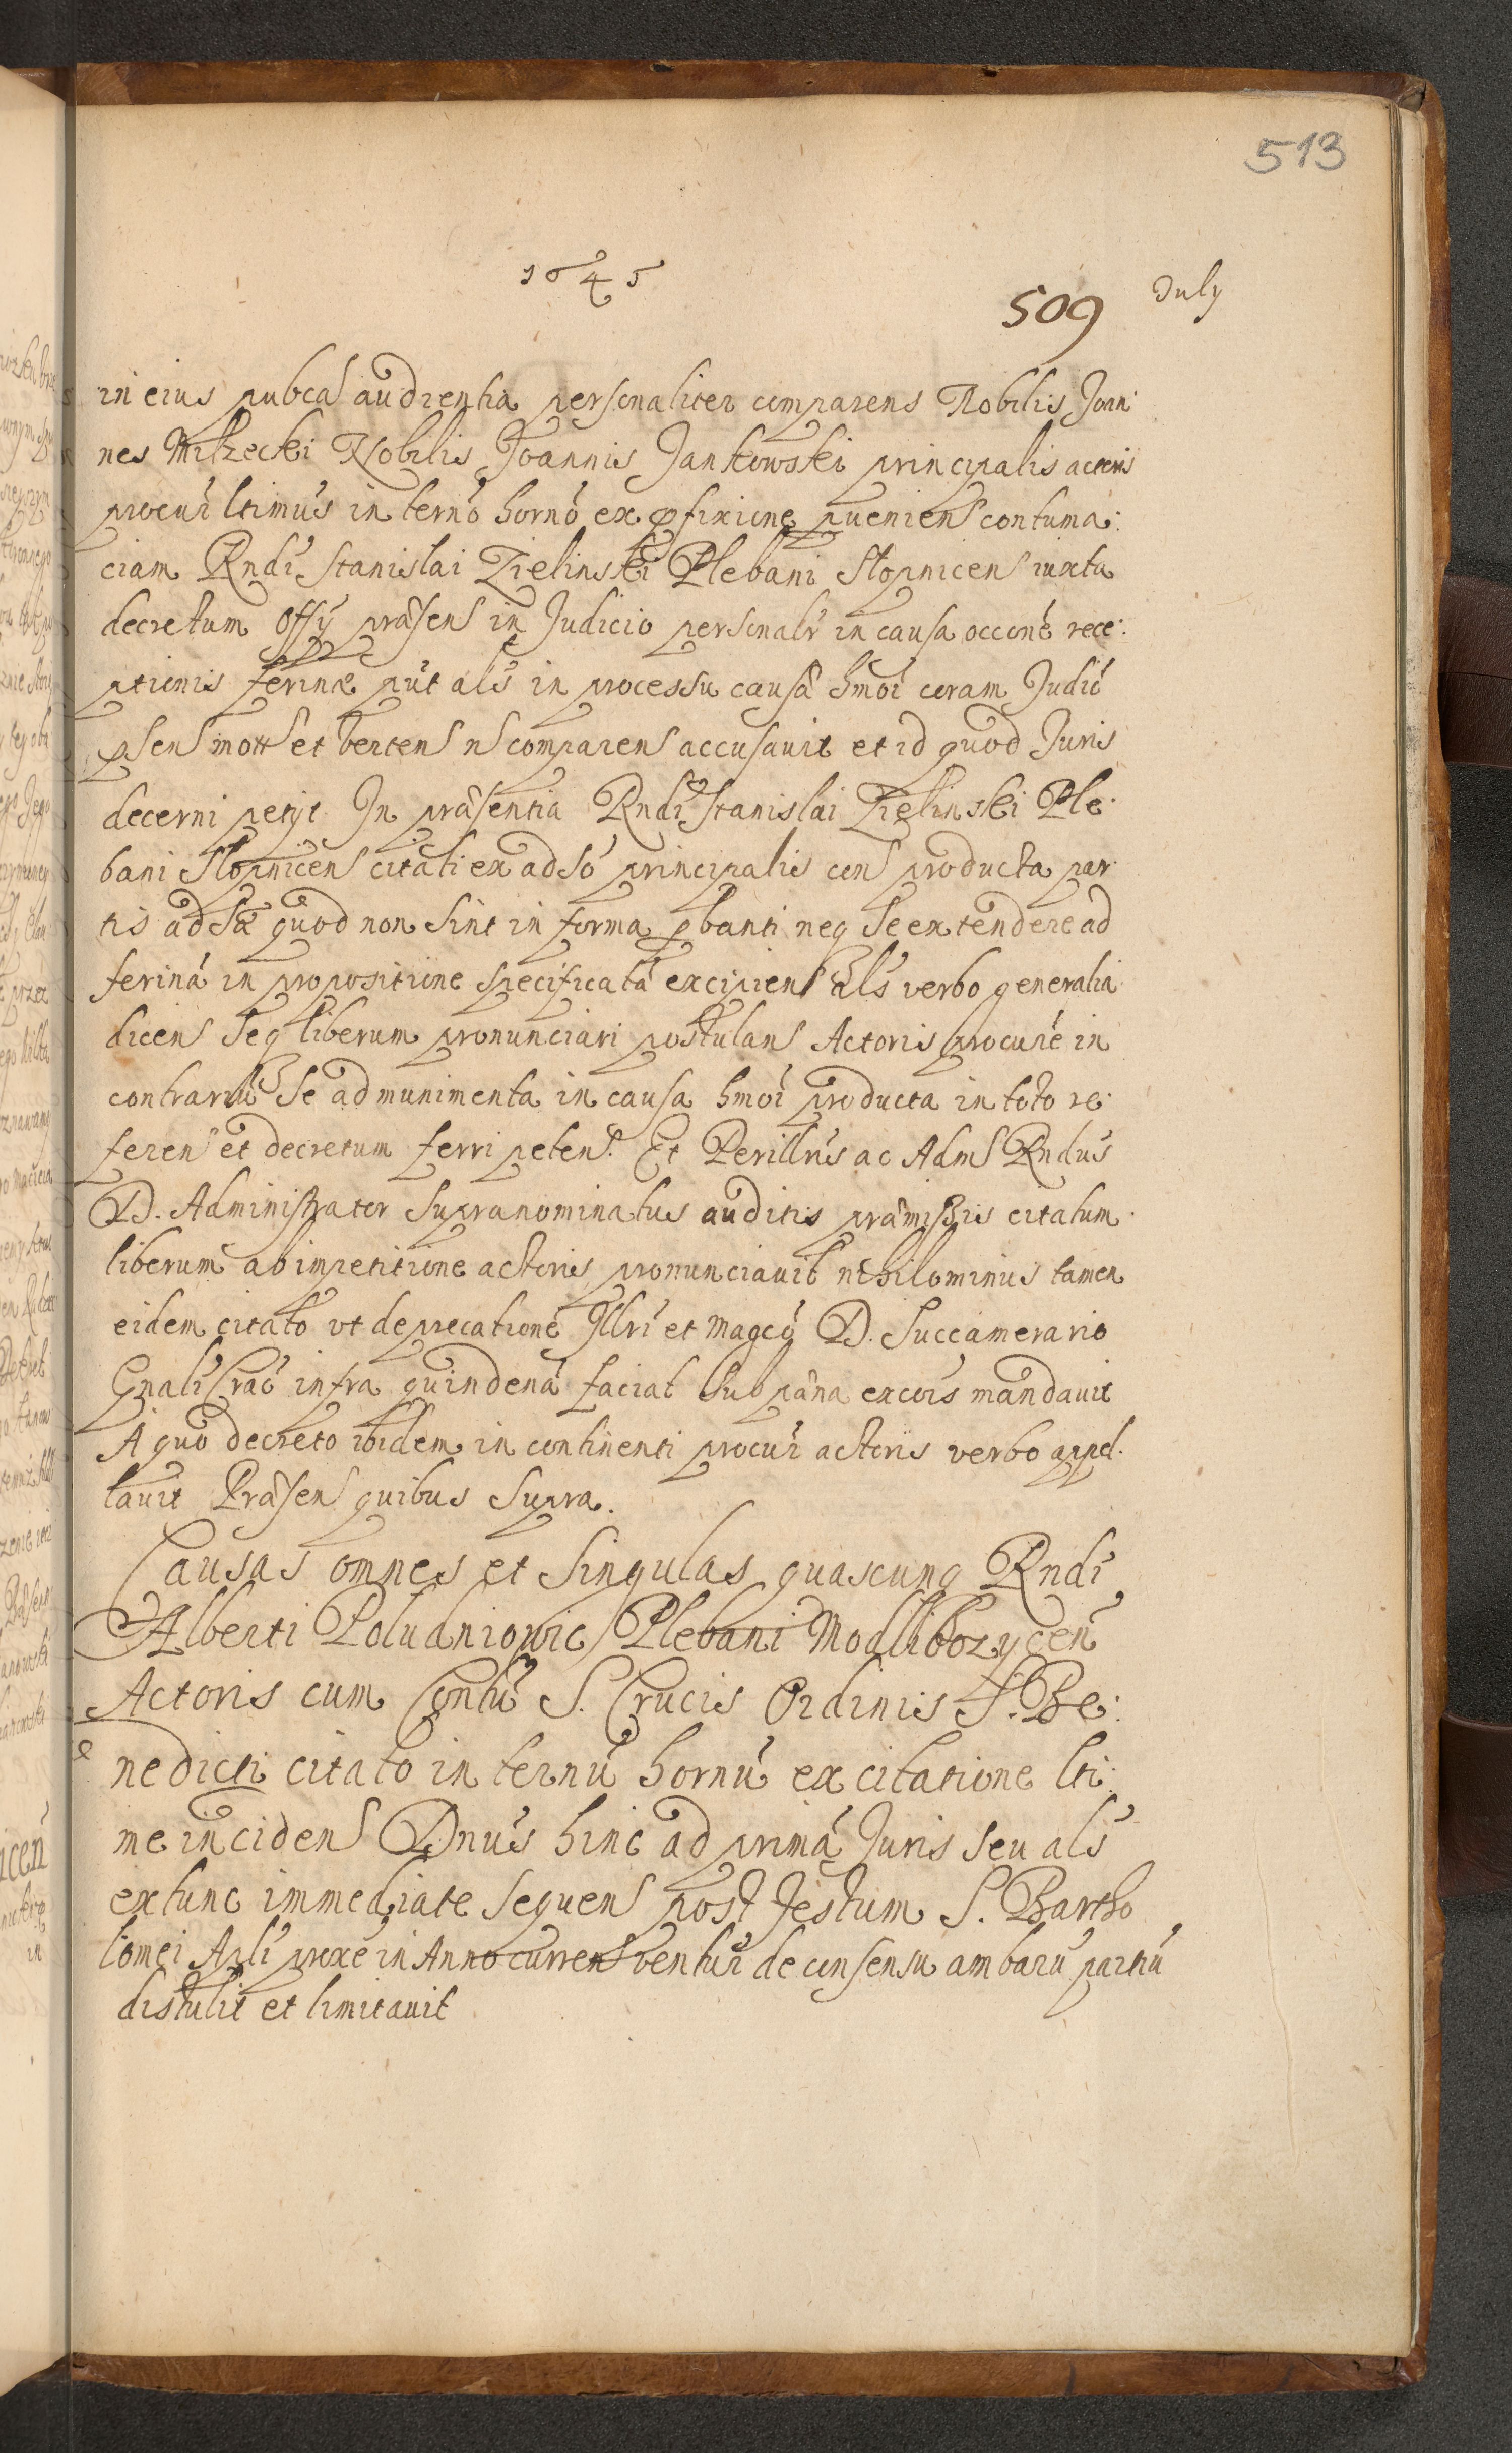 513
1645
509 July
in eius pubca audientia personaliter comparens Nobilis Joan:
nes Milzecki Nobilis Joannis Jankowski principalis actoris
procur ltimus in terno horno ex pfixione pueniens contuma:
ciam Rndi Stanislai Zielinski Plebani Stopnicens iuxta
decretum Offy præsens in Judicio personalr in causa occone rece:
ptionis ferinæ put als in processu causa hmoi coram Judic
psens mott et vertens n comparens accusavit et id quod Juris
decerni petyt. In præsentia Rndi Stanislai Zielinski Ple:
bani Stopnicens citati ex adso principalis cons producta par:
tis adsæ quod non sint in forma pbanti neq se extendere ad
ferinā in propositione specificatā excipiens als verbo generalia
dicens seq liberum pronunciari postulans Actoris procure in
contrariū se ad munimenta in causa hmoi producta in toto re:
ferens et decretum ferri petens. Et Perillris ac Adms Rndus
D. Administrator supranominatus auditis præmissis citatum
liberum ab impetitione actoris pronunciavit nihilominus tamen
eidem citato ut deprecationē Illri et Magco D. Succamerario
Gnali Crac infra quindenā faciat sub pæna excois mandavit
A quo decreto ibidem in continenti procur actoris verbo appel:
lavit Præsen quibus supra.
Causas omnes et singulas quascunq Rndi
Alberti Poludniowic Plebani Modlibozycen
Actoris cum Contu S. Crucis Ordinis S. Be:
nedicti citato in ternū hornū ex citatione lti:
me incidens Dnus hinc ad primā Juris seu als
extunc immediate sequens post festum S. Bartho
lomei Apli proxe in Anno currens ventur de consensu ambarū partiū
distulit et limitavit